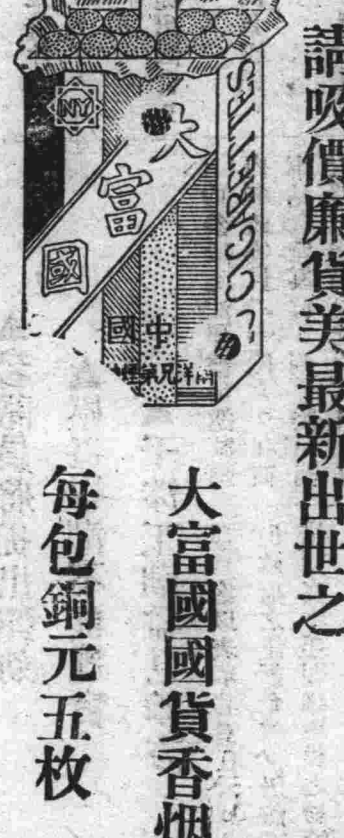 請吸價廉貨美最新出世之
大富國國貨香烟
每包銅元五枚
大富國
CIGARETTES
NY
中國